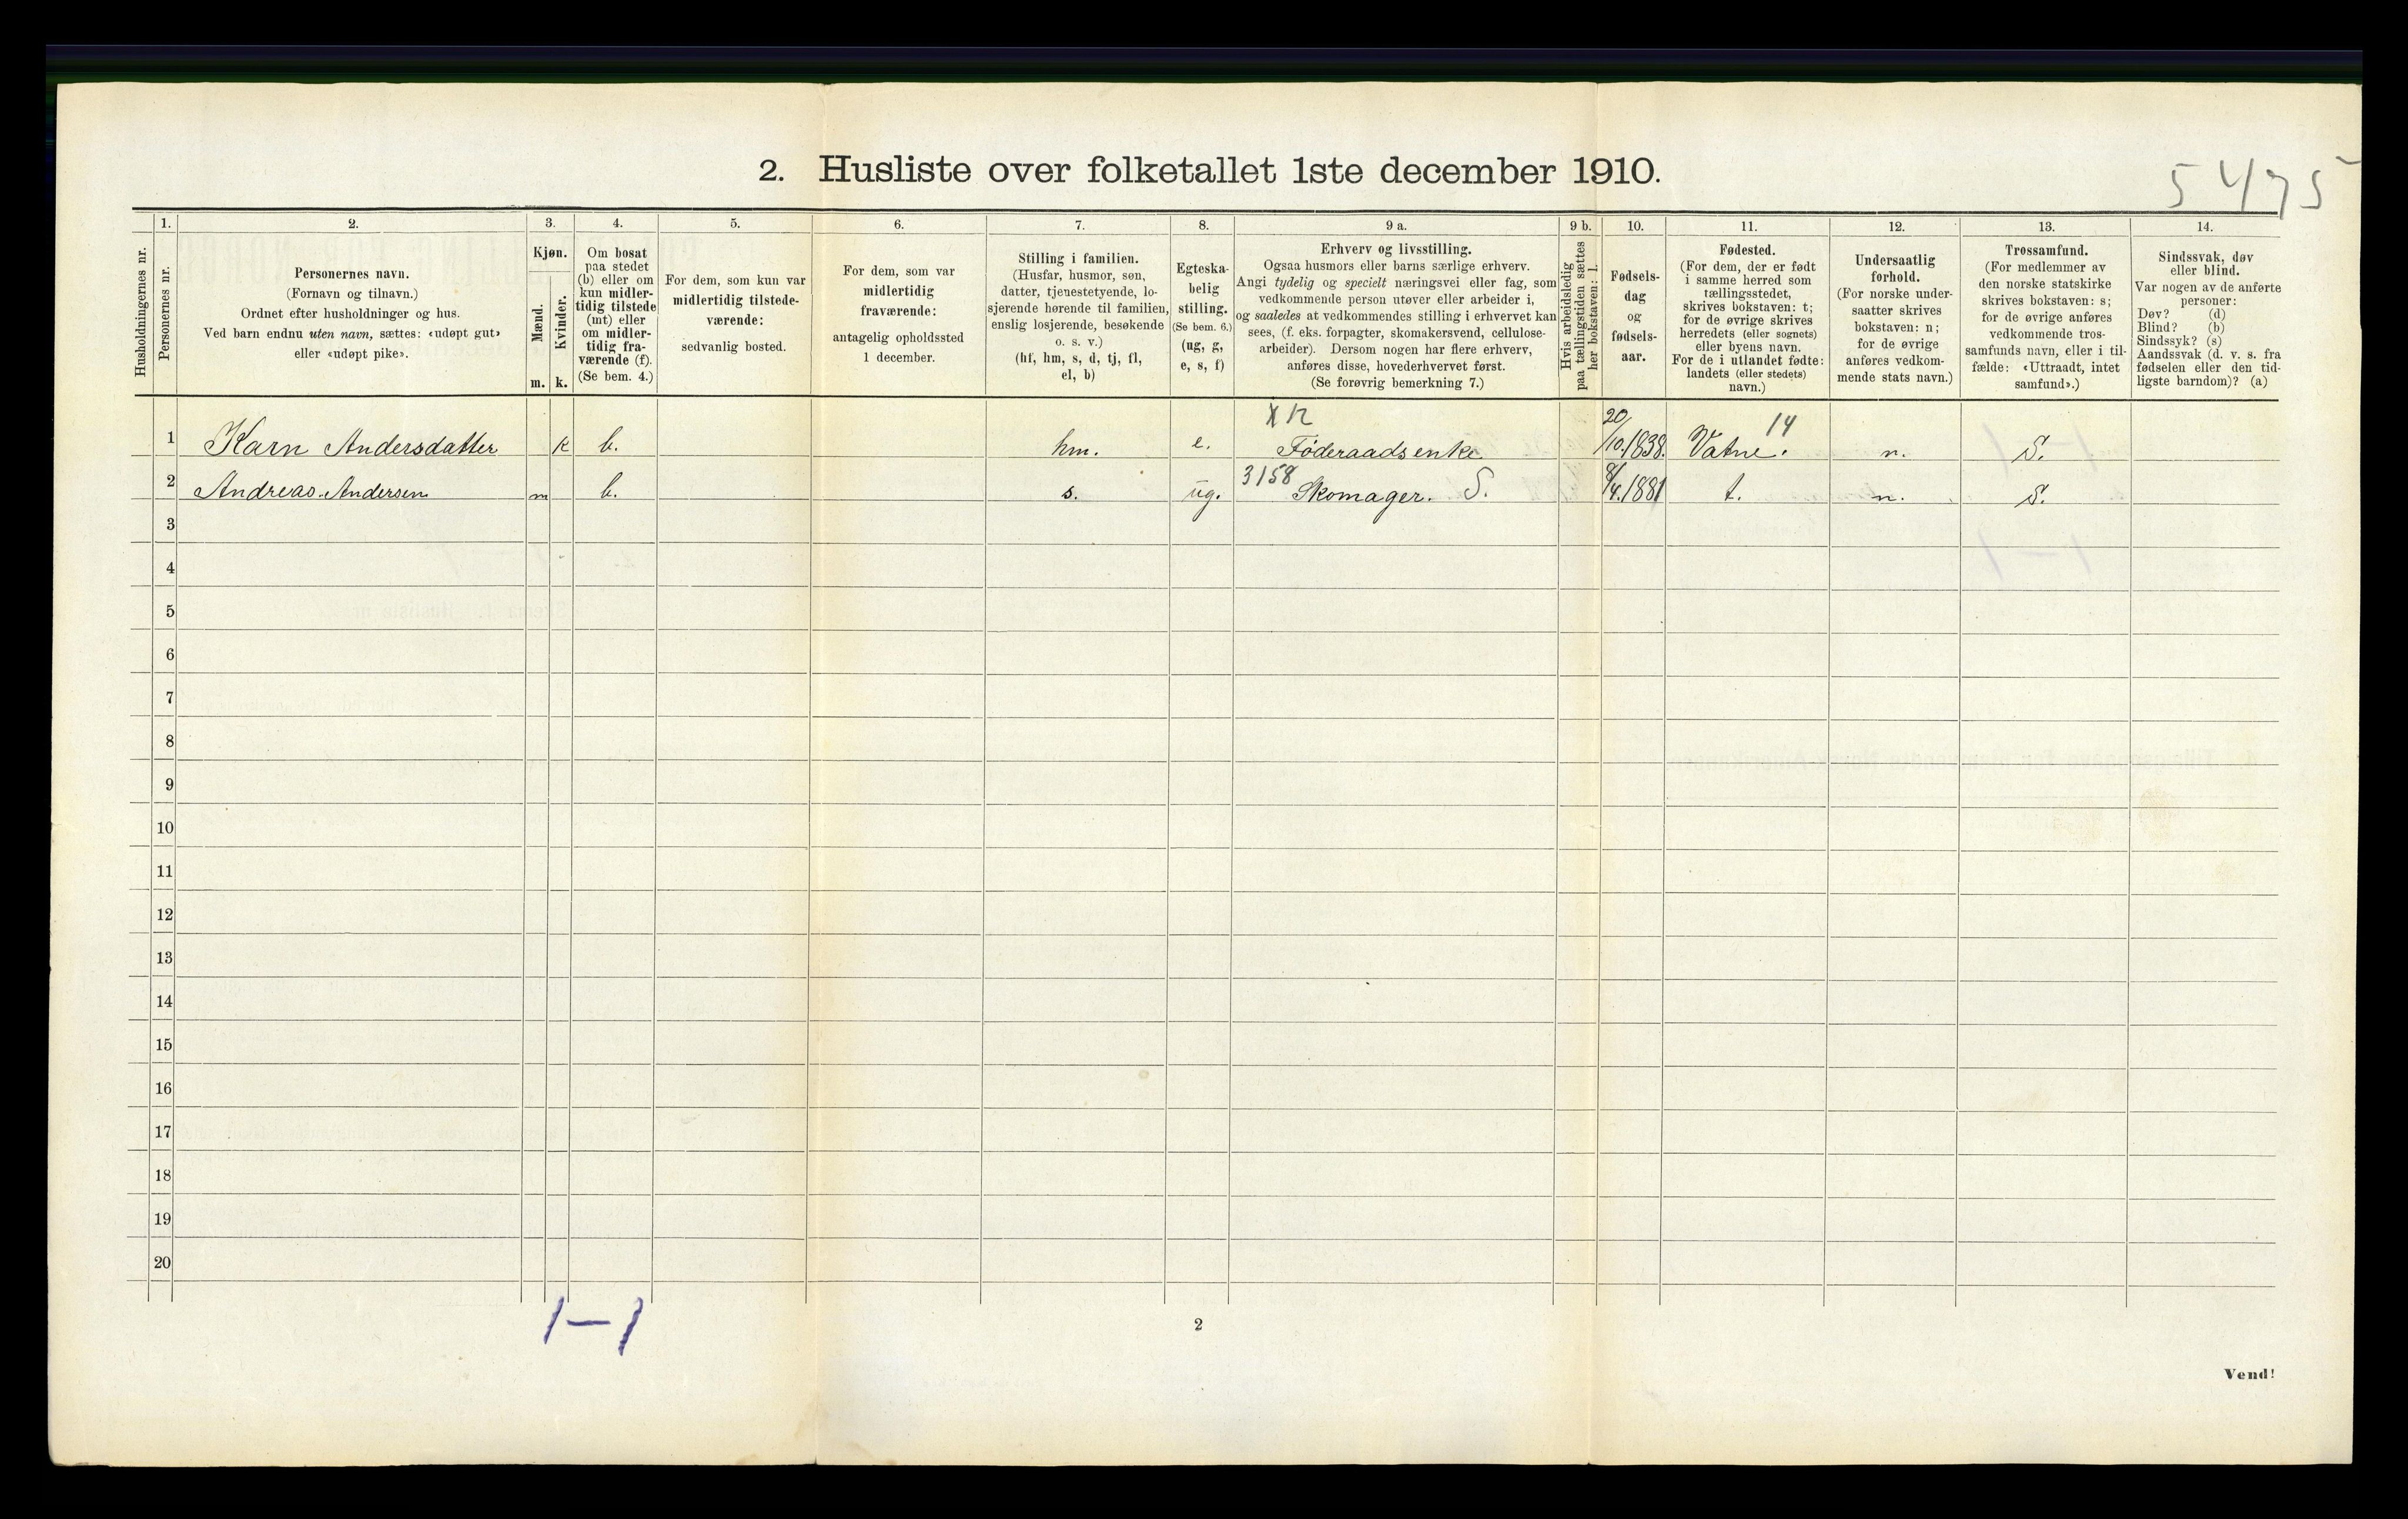 2. Husliste over folketallet 1ste december 1910.
5475
1. 2. 3. 4. 5. 6. 7. 8. 9 a. 9 b. 10. 11. 12. 13. 14.
Husholdningernes nr.
Personernes nr.
Personernes navn.
(Fornavn og tilnavn.)
Ordnet efter husholdninger og hus.
Ved barn endnu uten navn, sættes: «udøpt gut»
eller «udøpt pike».
Kjøn.
Mænd.
Kvinder.
m. k.
Om bosat
paa stedet
(b) eller om
kun midler-
tidig tilstede
(mt) eller
om midler-
tidig fra-
værende (f).
(Se bem. 4.)
For dem, som kun var
midlertidig tilstede-
værende:
sedvanlig bosted.
For dem, som var
midlertidig
fraværende:
antagelig opholdssted
1 december.
Stilling i familien.
(Husfar, husmor, søn,
datter, tjenestetyende, lo-
sjerende hørende til familien,
enslig losjerende, besøkende
o. s. v.)
(hf, hm, s, d, tj, fl,
el, b)
Egteska-
belig
stilling.
(Se bem. 6.)
(ug, g,
e, s, f)
Erhverv og livsstilling.
Ogsaa husmors eller barns særlige erhverv.
Angi tydelig og specielt næringsvei eller fag, som
vedkommende person utøver eller arbeider i,
og saaledes at vedkommendes stilling i erhvervet kan
sees, (f. eks. forpagter, skomakersvend, cellulose-
arbeider). Dersom nogen har flere erhverv,
anføres disse, hovederhvervet først.
(Se forøvrig bemerkning 7.)
Hvis arbeidsledig
paa tællingstiden sættes
her bokstaven: l.
Fødsels-
dag
og
fødsels-
aar.
Fødested.
(For dem, der er født
i samme herred som
tællingsstedet,
skrives bokstaven: t;
for de øvrige skrives
herredets (eller sognets)
eller byens navn.
For de i utlandet fødte:
landets (eller stedets)
navn.)
Undersaatlig
forhold.
(For norske under-
saatter skrives
bokstaven: n;
for de øvrige
anføres vedkom-
mende stats navn.)
Trossamfund.
(For medlemmer av
den norske statskirke
skrives bokstaven: s;
for de øvrige anføres
vedkommende tros-
samfunds navn, eller i til-
fælde: «Uttraadt, intet
samfund».)
Sindssvak, døv
eller blind.
Var nogen av de anførte
personer:
Døv? (d)
Blind? (b)
Sindssyk? (s)
Aandssvak (d. v. s. fra
fødselen eller den tid-
ligste barndom)? (a)
1 Karn Andersdatter k b. hm. e. Føderaadsenke 20/10.1838. Vatne. 14 n. S.
2 Andreas Andersen m b. s. ug. 3158 Skomager. S. 8/4.1881 t. n. S.
3
4
5
6
7
8
9
10
11
12
13
14
15
16
17
18
19
20
1-1
2
Vend!